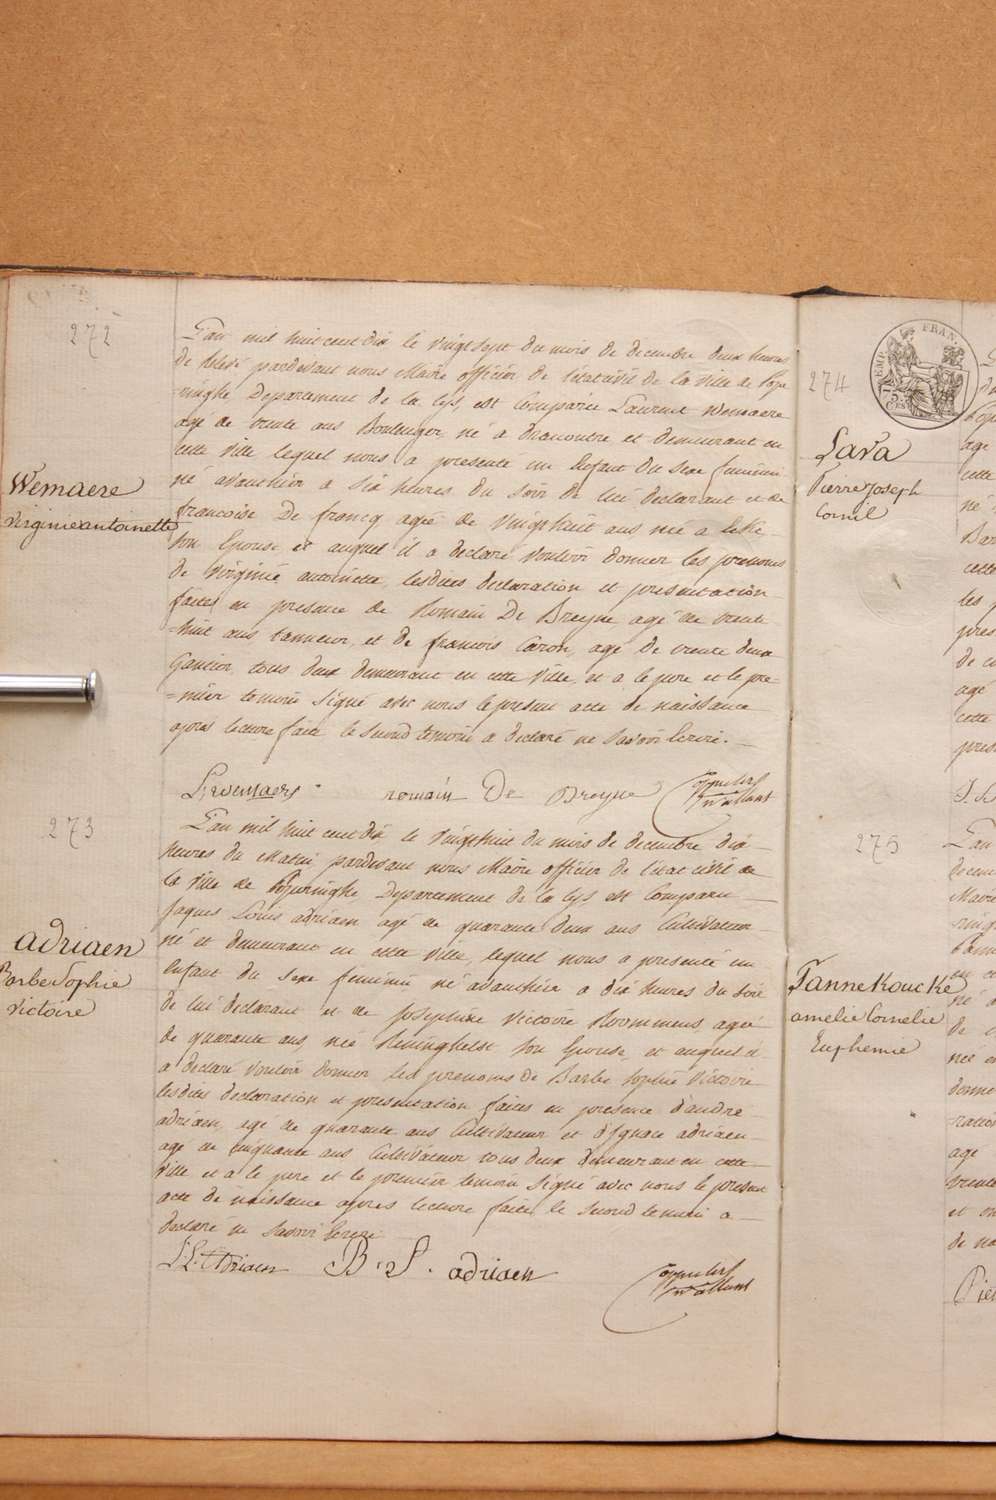 272
L'an mil huit cent dix le vingt sept du mois de decembre deux heures
de relevé pardevant nous Maire officier de l'etat civil de la ville de Pope
=ringhe Departement de la Lys, est Comparu Laurent Wemaere
agé de trente ans Boulenger né a Dranoutre et demeurant en
cette ville lequel nous a presenté un Enfant du sexe feminin
né avanthier a six heures du soir de lui declarant et de
Wemaere
Virginie antoinette
francoise De francq ageé de vingt huit ans neé a
son Epouse et auquel il a declaré vouloir donner les prenoms
de Virginie antoinette, lesdites declaration et presentation
faites en presence de Romain De Breyne agé de trente
=huit ans tanneur, et de francois Caron, agé de trente deux
Gantier, tous deux demeurant en cette ville, et a le pere et le pre=
=mier temoin signé avec nous le present acte de naissance
apres lecture faite le second temoin a declaré ne savoir Ecrire.
L, wemaere romain De Breyne
273
L'an mil huit cent dix le vingt huit du mois de decembre dix
heures du Matin pardevant nous Maire officier de l'etat civil de
la ville de Poperinghe, Departement de la Lys est Comparu
Jaques Louis adriaen agé de quarante deux ans Cultivateur
né et demeurant en cette ville, lequel nous a presenté un
adriaen
Barbe Sophie
Victoire
Enfant du sexe feminin né avanthier a dix heures du soir
de lui declarant et de Josephine Victoire Rommens ageé
de quarante ans neé Reninghelst son Epouse, et auquel il
a declaré vouloir donner les prenoms de Barbe sophie Victoire
lesdites declaration et presentation faites en presence d'andre
adriaen, agé de quarante ans Cultivateur et d'Ignace adriaen
agé de cinquante ans Cultivateur tous deux demeurant en cette
ville et a le pere et le premier temoin signé avec nous le present
acte de naissance apres lecture faite le second temoin a
declaré ne savoir Ecrire
J. L. Adriaen B. S. adriaen
274
EMP. FRAN.
Lava
Pierre Joseph
Cornil
275
Fannekoucke
amelie Cornelie
Euphemie